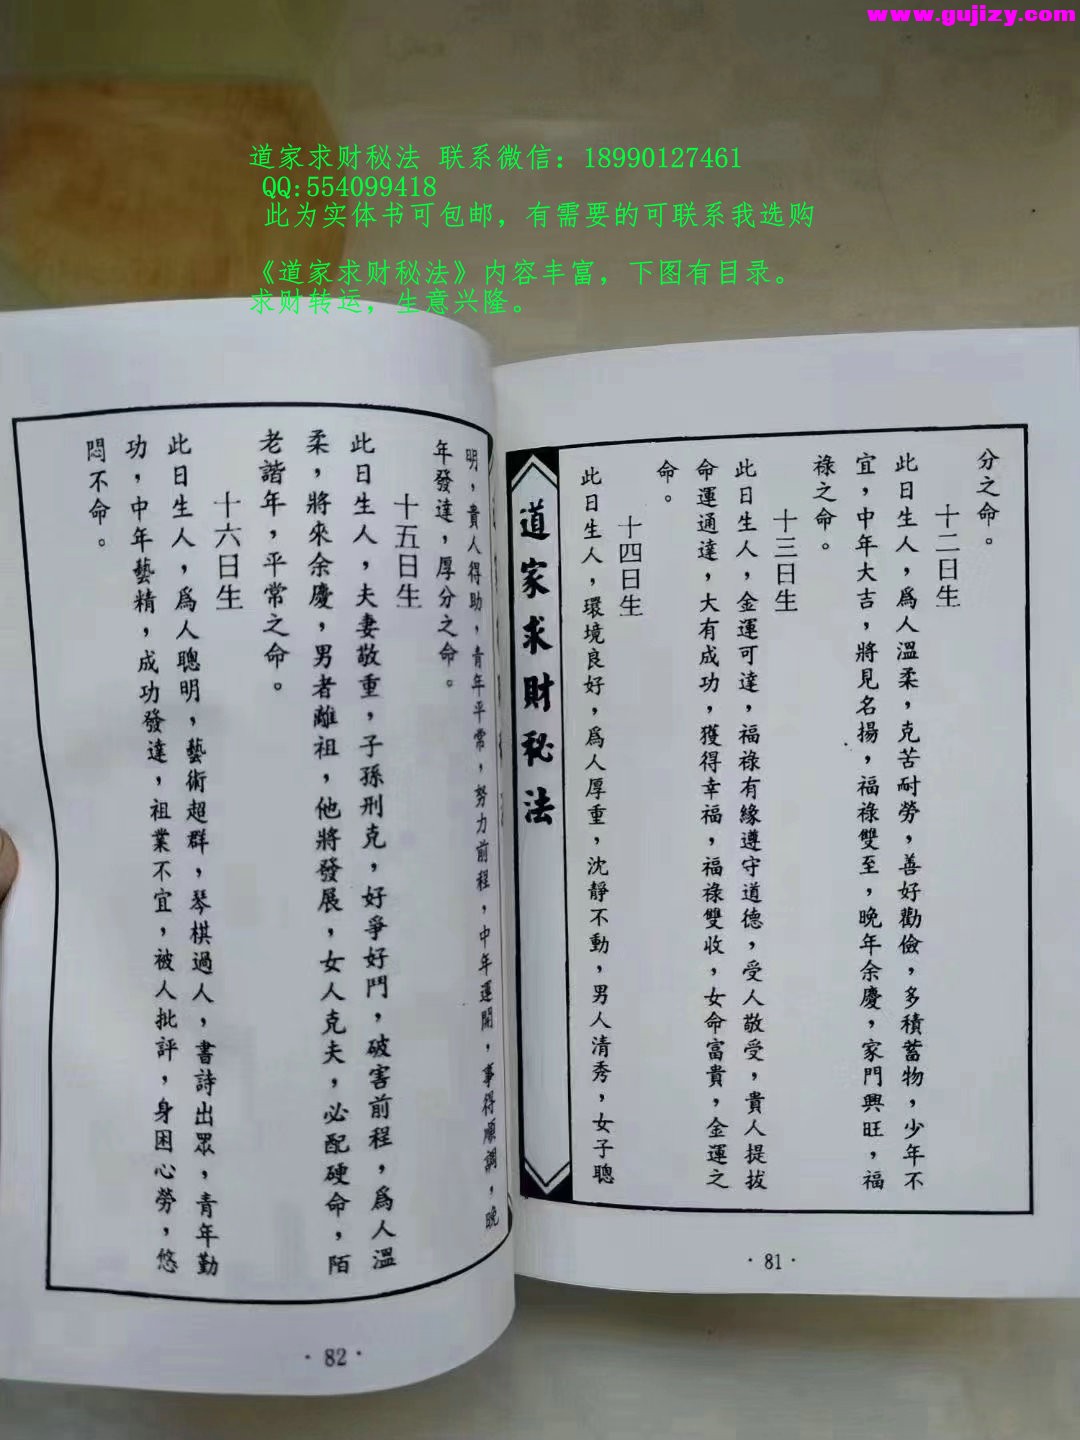 www.gujizy.com
道家求财秘法 联系微信：18990127461
QQ:554099418
此为实体书可包邮，有需要的可联系我选购
《道家求财秘法》内容丰富，下图有目录。
求财转运，生意兴隆。
分之命。
十二日生
此日生人，爲人溫柔，克苦耐勞，善好勸儉，多積蓄物，少年不
宜，中年大吉，將見名揚，福祿雙至，晚年余慶，家門興旺，福
祿之命。
十三日生
此日生人，金運可達，福祿有緣遵守道德，受人敬受，貴人提拔
命運通達，大有成功，獲得幸福，福祿雙收，女命富貴，金運之
命。
十四日生
此日生人，環境良好，爲人厚重，沈靜不動，男人清秀，女子聰
道家求財秘法
·81·
明，貴人得助，青年平常，努力前程，中年運開，事得順調，晚
年發達，厚分之命。
十五日生
此日生人，夫妻敬重，子孫刑克，好爭好鬥，破害前程，爲人溫
柔，將來余慶，男者離祖，他將發展，女人克夫，必配硬命，陌
老諧年，平常之命。
十六日生
此日生人，爲人聰明，藝術超群，琴棋過人，書詩出眾，青年勤
功，中年藝精，成功發達，祖業不宜，被人批評，身困心勞，悠
悶不命。
·82·